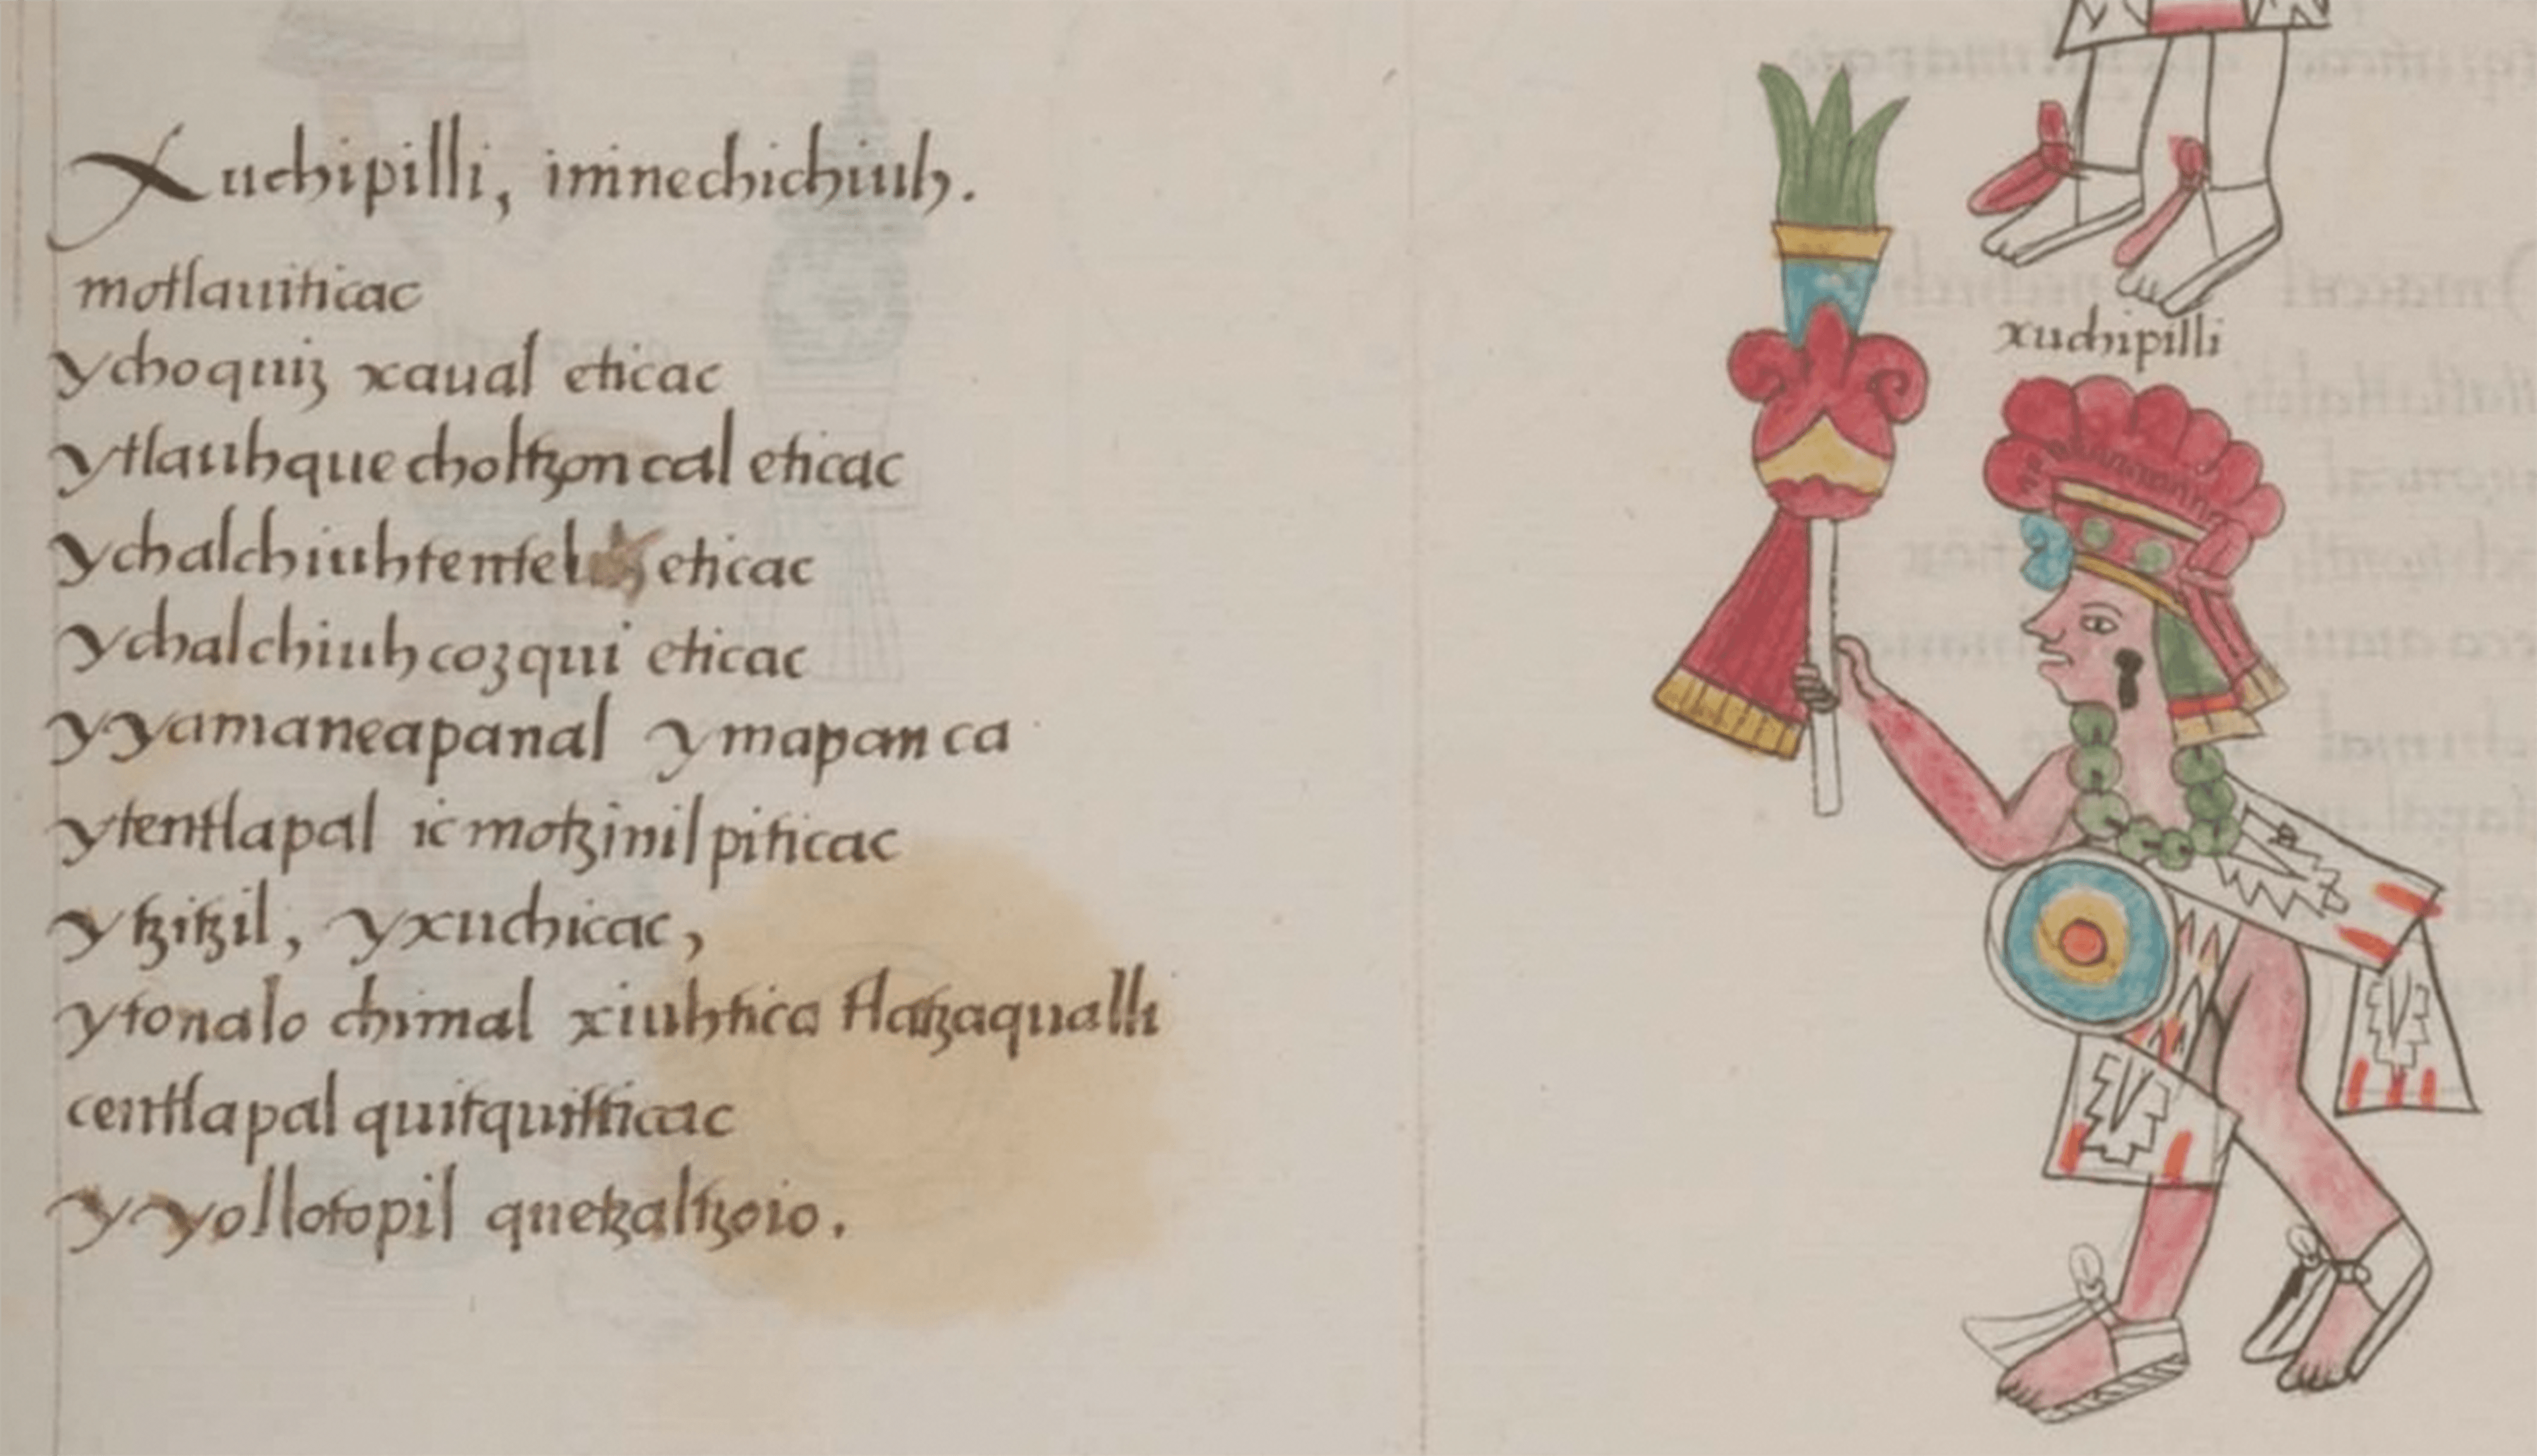 Xuchipilli, ininechichiuh.
motlauiticac
ychoquiz xaual eticac
ytlauhquecholtzoncal eticac
ychalchiuhtentel eticac
ychalchiuhcozqui eticac
yyamaneapanal ymapanca
ytentlapal ic motzinilpiticac
ytzitzil, yxuchicac,
ytonalo chimal xiuhtica tlatzaqualli
centlapal quitquitticac
yyollotopil quetzaltzoio.
xuchipilli